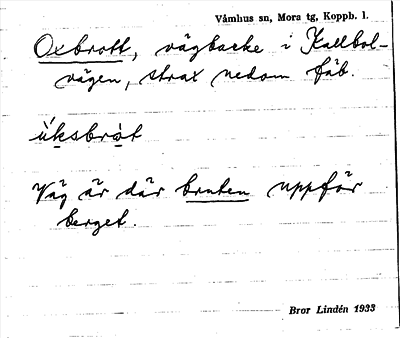 Våmhus sn, Mora tg, Koppb. l.
Oxbrott, vägbacke i Kallbol-
vägen, strax nedom fäb.
ùksbròt
Väg är där bruten uppför
berget.
Bror Lindén 1933